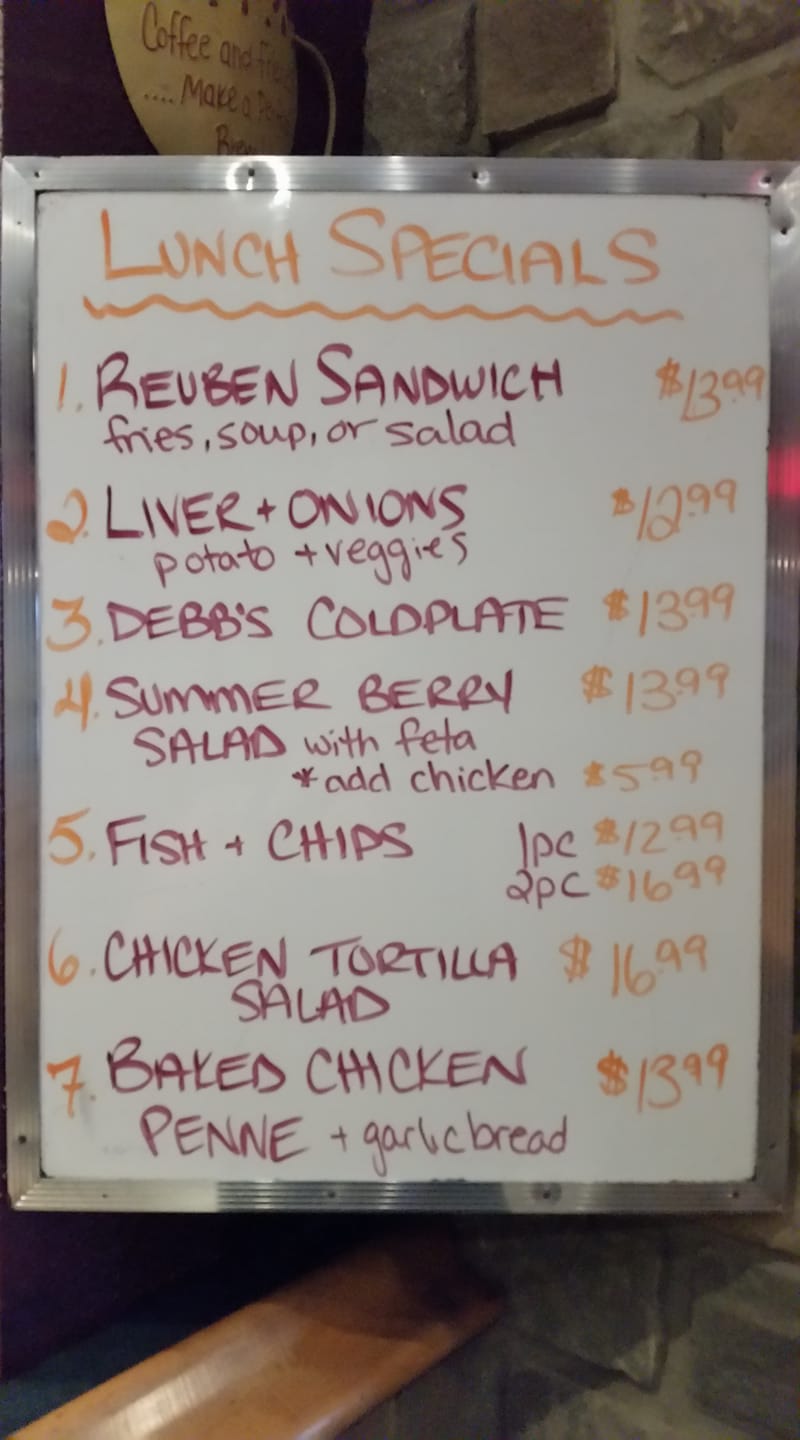 Coffee and
.... Make a
LUNCH SPECIALS
1. REUBEN SANDWICH $13.99
fries, soup, or salad
2. LIVER + ONIONS $12.99
potato + veggies
3. DEBB'S COLDPLATE $13.99
4. SUMMER BERRY $13.99
SALAD with feta
*add chicken $5.99
5. FISH + CHIPS 1pc $12.99
2pc $16.99
6. CHICKEN TORTILLA $16.99
SALAD
7. BAKED CHICKEN $13.99
PENNE + garlic bread